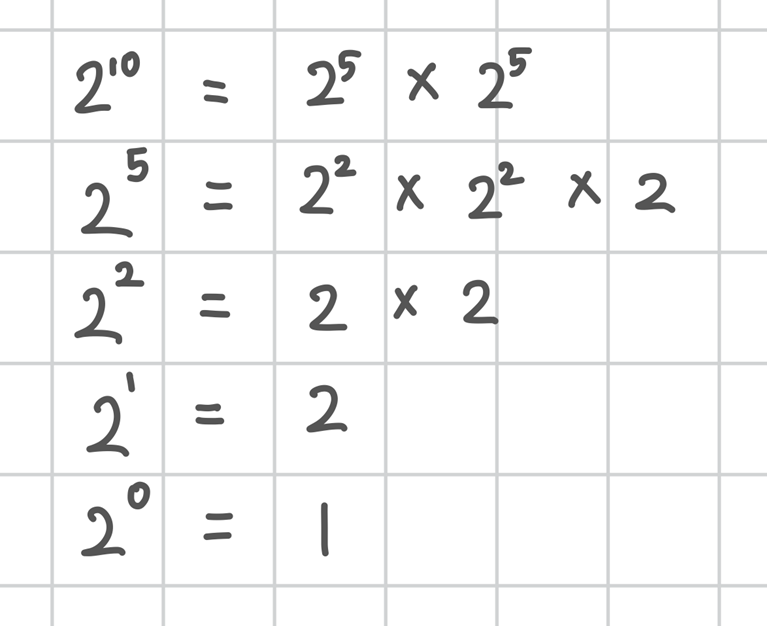 2¹⁰ = 2⁵ × 2⁵
2⁵ = 2² × 2² × 2
2² = 2 × 2
2¹ = 2
2⁰ = 1